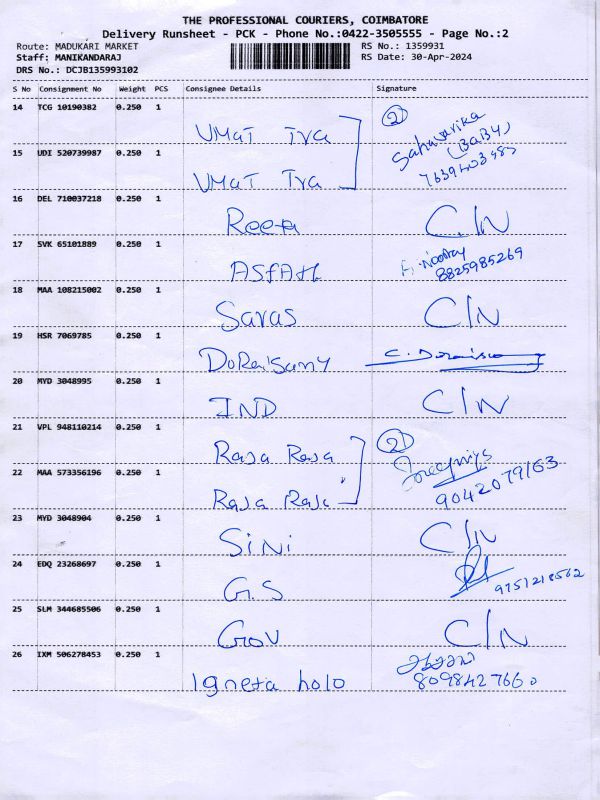 THE PROFESSIONAL COURIERS, COIMBATORE
Delivery Runsheet - PCK - Phone No.:0422-3505555 - Page No.:2
Route: MADUKARI MARKET RS No.: 1359931
Staff: MANIKANDARAJ RS Date: 30-Apr-2024
DRS No.: DCJB135993102
S No Consignment No Weight PCS Consignee Details Signature
14 TCG 10190382 0.250 1 UMaT Tva 2
Sahavarika
(BaBy)
15 UDI 520739987 0.250 1 UMaT Tva
16 DEL 710037218 0.250 1 Reeta C/N
17 SVK 65101889 0.250 1 ASfAH 8825985269
18 MAA 108215002 0.250 1 Savas C/N
19 HSR 7069785 0.250 1 DoRaisamy
20 MYD 3048995 0.250 1 IND C/N
21 VPL 948110214 0.250 1 Raja Raja 2
22 MAA 573356196 0.250 1 Raja Raja 9042079163
23 MYD 3048904 0.250 1 Sini C/N
24 EDQ 23268697 0.250 1 G.S 9751218562
25 SLM 344685506 0.250 1 Gov C/N
26 IXM 506278453 0.250 1 Igneta holo 8098427660